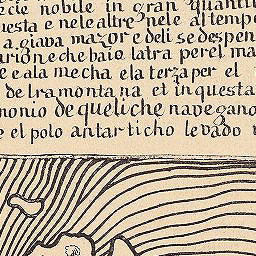 cie nobile in gran quanti
uesta e nele altre nele al tempo
a giava mazor e deli se despen
arion e che baio latra per el mar
e e ala mecha e la terza per el
de l ra mon ta na et in questa
monio de queli che navegano
e el polo antarticho levado